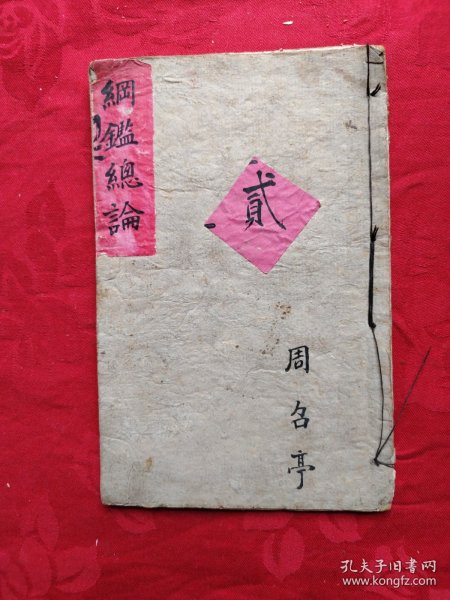 綱鑑總論
貳
周名亭
孔夫子旧书网
www.kongfz.com